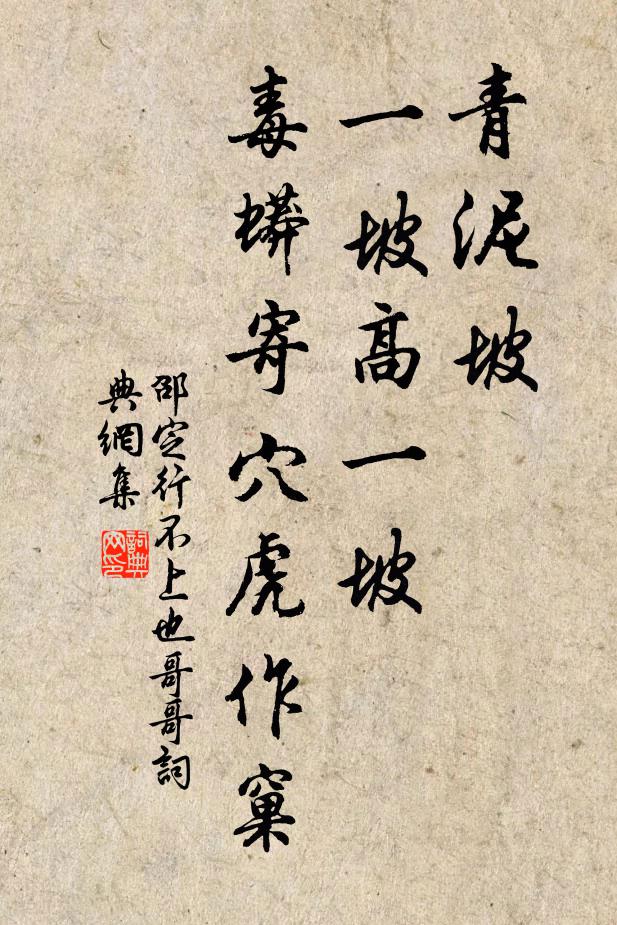 青泥坡
一坡高一坡
毒蟒寄穴虎作窠
邵定行不上也哥哥詞
典網集
詞典
网印